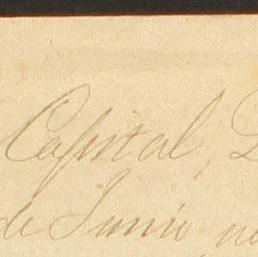 Capital,
de Junio